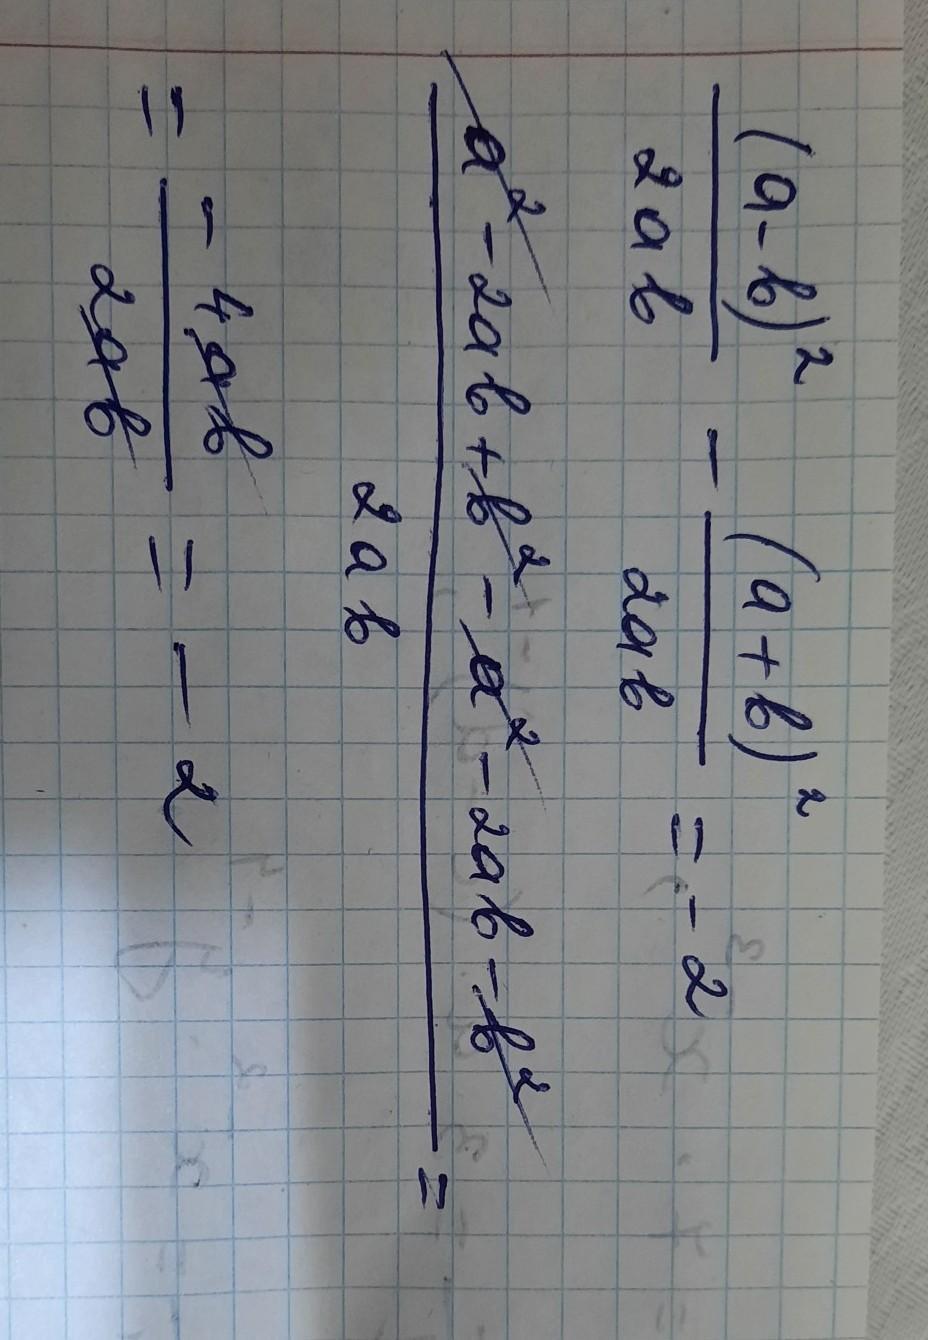 (a-b)²/2ab - (a+b)²/2ab = -2
a² - 2ab + b² - a² - 2ab - b²/2ab =
= -4ab/2ab = -2